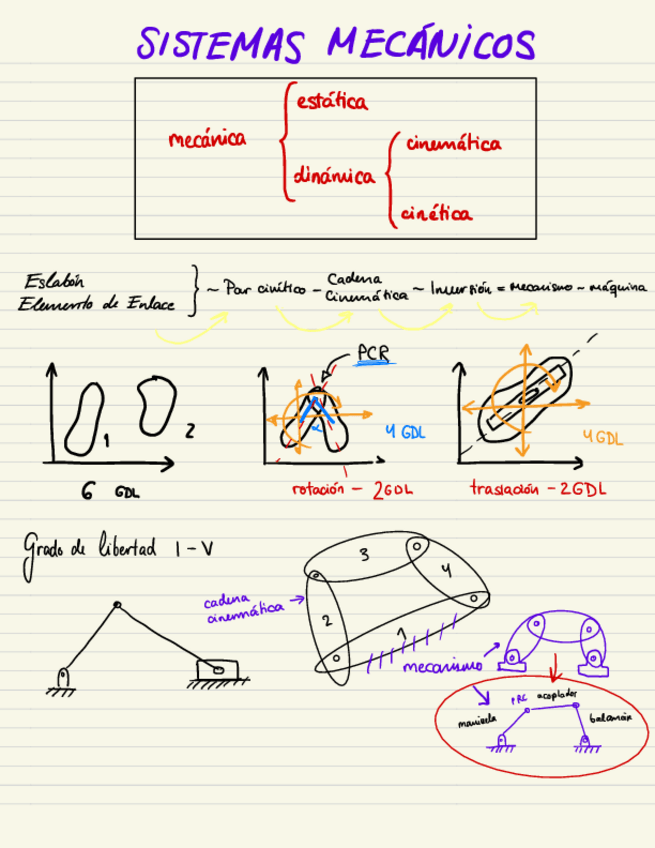 SISTEMAS MECÁNICOS
estática
mecánica
cinemática
dinámica
cinética
Eslabón
Elemento de Enlace
~ Par cinético - Cadena Cinemática ~ Inversión = mecanismo ~ máquina
PCR
1
2
α
4 GDL
4 GDL
6 GDL
rotación - 2GDL
traslación - 2GDL
Grado de libertad I - V
3
4
cadena
cinemática
2
1
mecanismo
PRC
acoplador
manivela
balancín